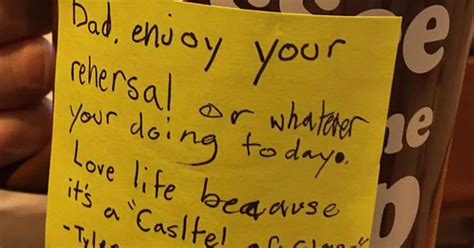 Dad, enjoy your
rehersal or whatever
your doing today.
Love life because
it's a "Casltel of
-Tyler